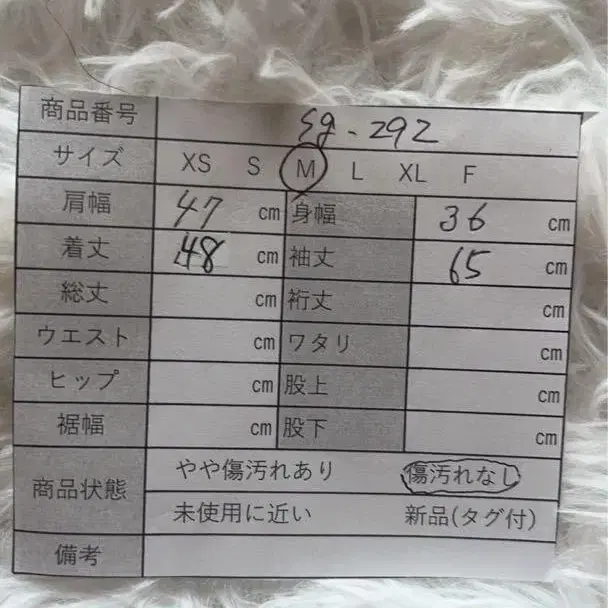 商品番号 sg-292
サイズ XS S M L XL F
肩幅 47 cm 身幅 36 cm
着丈 48 cm 袖丈 65 cm
総丈 cm 裄丈 cm
ウエスト cm ワタリ cm
ヒップ cm 股上 cm
裾幅 cm 股下 cm
商品状態 やや傷汚れあり 傷汚れなし
未使用に近い 新品(タグ付)
備考